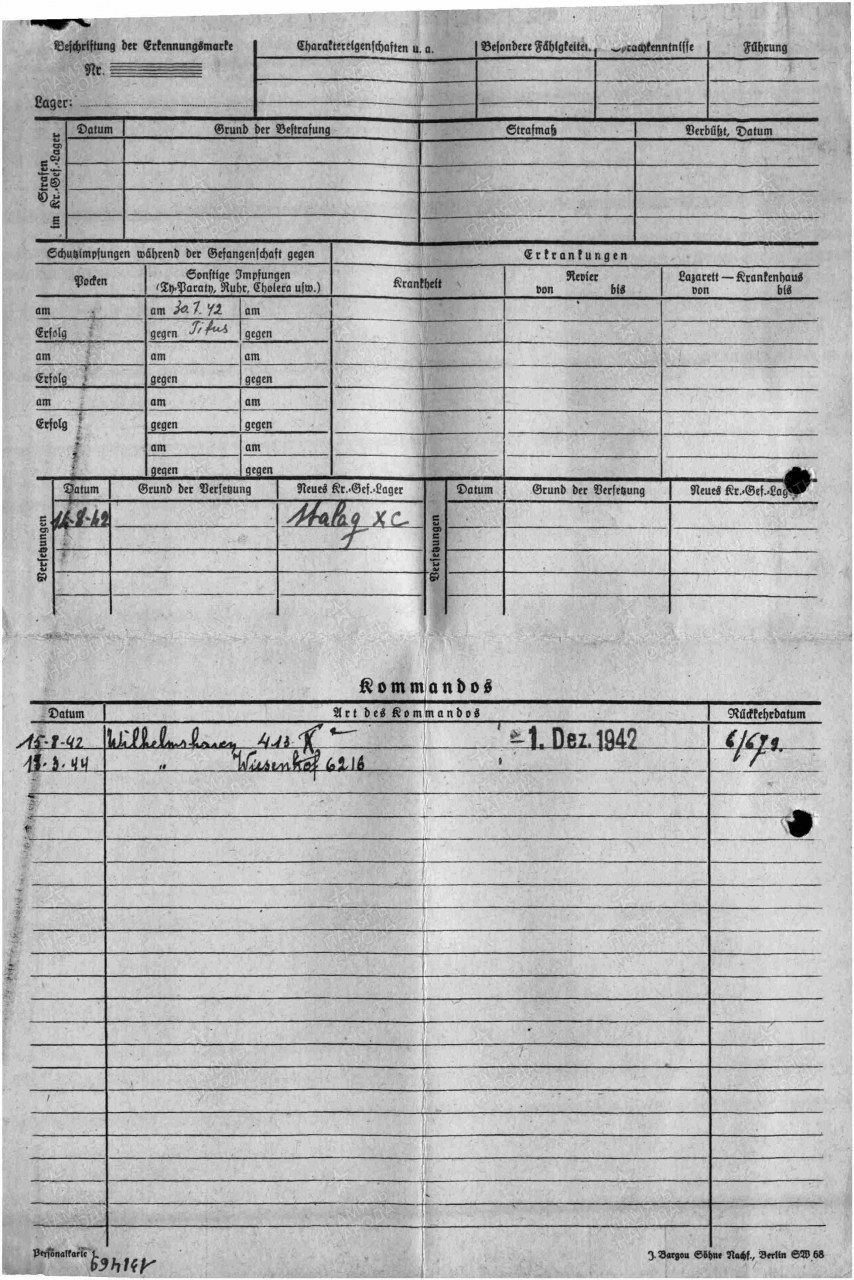 Beschriftung der Erkennungsmarke
Nr.
Lager:
Charaktereigenschaften u. a.
Besondere Fähigkeiten
Sprachkenntnisse
Führung
Strafen
im Kr.-Gef.-Lager
Datum
Grund der Bestrafung
Strafmaß
Verbüßt, Datum
Schutzimpfungen während der Gefangenschaft gegen
Erkrankungen
Pocken
Sonstige Impfungen
(Ty-Paraty, Ruhr, Cholera usw.)
Krankheit
Revier
von bis
Lazarett — Krankenhaus
von bis
am am 30.7.42 am
Erfolg gegen Tifus gegen
am am am
Erfolg gegen gegen
am am am
Erfolg gegen gegen
am am
gegen gegen
Versetzungen
Datum Grund der Versetzung Neues Kr.-Gef.-Lager
-8-42 Stalag XC
Versetzungen
Datum Grund der Versetzung Neues Kr.-Gef.-Lag
Kommandos
Datum Art des Kommandos Rückkehrdatum
15-8-42 Wilhelmshaven 413 X - 1. Dez. 1942
13-3-44 " Wiesenhof 6216
Personalkarte I
J. Bargou Söhne Nachf., Berlin SW 68